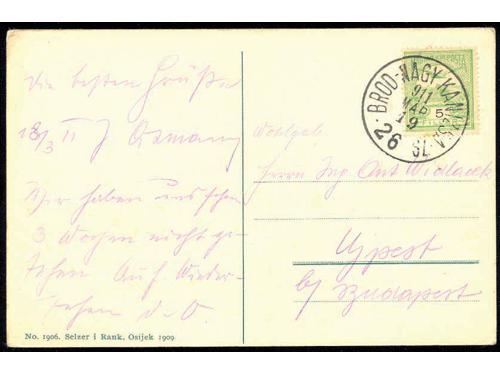 Die besten Grüße
18/3 11 J Osmany
Wir haben uns schon
3 Wochen nicht ge-
sehen Auf Wieder-
sehen d. O.
No. 1906. Selzer i Rank, Osijek 1909
BROD-NAGY KANIZSA
911
MAR
19
26
SL
5
Wohlgeb.
Herrn Ing Ant Widlacek
Ujpest
b/ Budapest